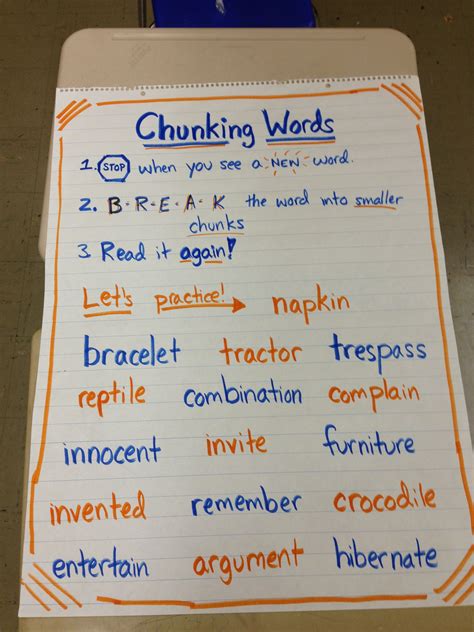 Chunking Words
1. STOP when you see a NEW word.
2. B-R-E-A-K the word into smaller
chunks
3. Read it again!
Let's practice! napkin
bracelet tractor trespass
reptile combination complain
innocent invite furniture
invented remember crocodile
entertain argument hibernate